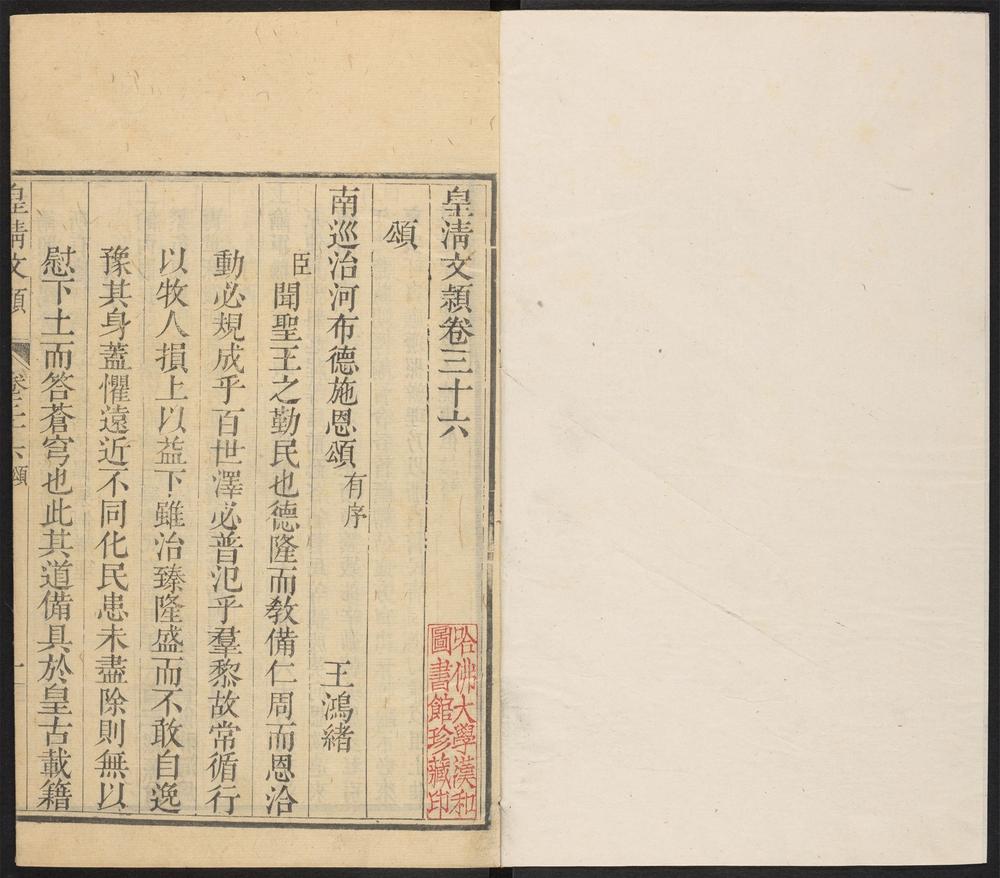 皇淸文頴卷三十六
頌
南巡治河布德施恩頌有序
王鴻緒
臣聞聖王之勤民也德隆而敎備仁周而恩洽
動必規成乎百世澤必普氾乎羣黎故常循行
以牧人損上以益下雖治臻隆盛而不敢自逸
豫其身蓋懼遠近不同化民患未盡除則無以
慰下土而答蒼穹也此其道備具於皇古載籍
皇淸文頴
卷三十六頌
一
哈佛大學漢和
圖書館珍藏印